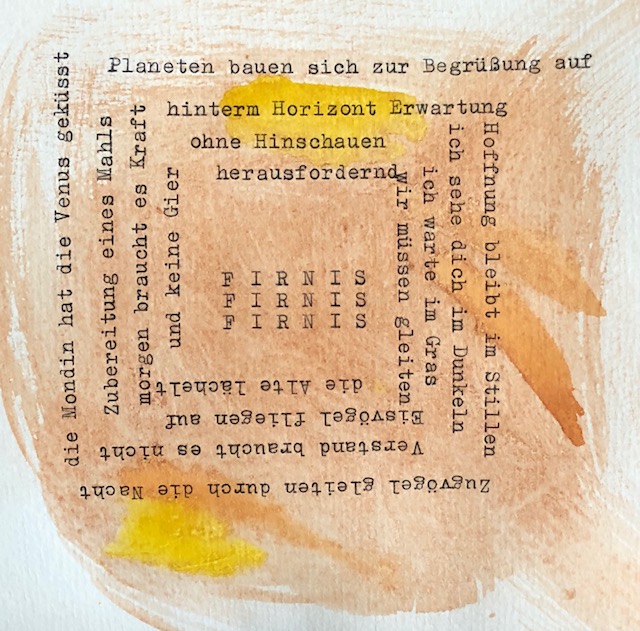 Planeten bauen sich zur Begrüßung auf
hinterm Horizont Erwartung
ohne Hinschauen
herausfordernd
Hoffnung bleibt im Stillen
ich sehe dich im Dunkeln
ich warte im Gras
wir müssen gleiten
Zugvögel gleiten durch die Nacht
Verstand braucht es nicht
Eisvögel fliegen auf
die Alte lächelt
die Mondin hat die Venus geküsst
Zubereitung eines Mahls
morgen braucht es Kraft
und keine Gier
FIRNIS
FIRNIS
FIRNIS